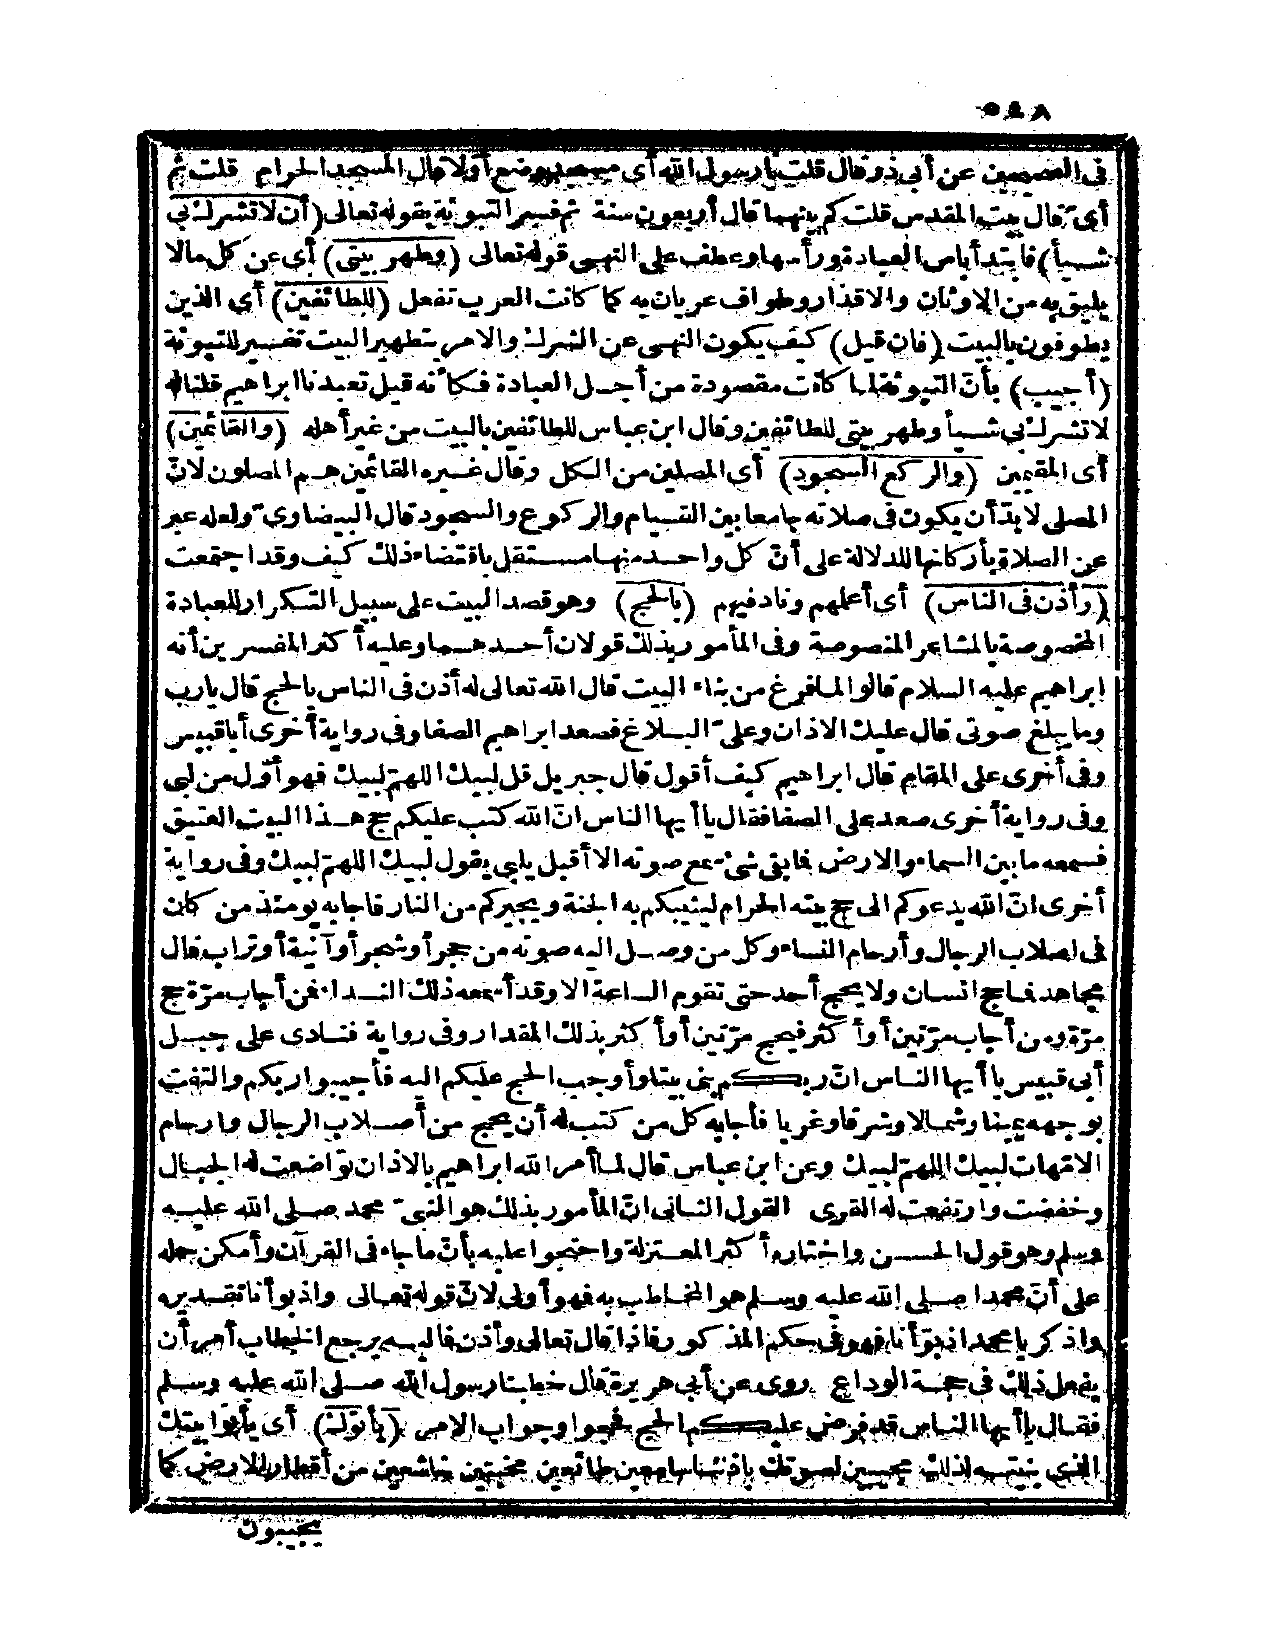 ٥٤٨
فى الصحيحين عن أبى ذر قال قلت يا رسول الله أى مسجد وضع أولا قال المسجد الحرام قلت ثم
أىّ قال بيت المقدس قلت كم بينهما قال أربعون سنة ثم فسر التبوئة بقوله تعالى (أن لا تشرك بى
شيأ) فابتدأ بأس العبادة ورأسها وعطف على النهى قوله تعالى (وطهر بيتى) أى عن كل ما لا
يليق به من الاوثان والاقذار وطواف عريان به كما كانت العرب تفعل (للطائفين) أى الذين
يطوفون بالبيت (فان قيل) كيف يكون النهى عن الشرك والامر بتطهير البيت تفسير للتبوئة
(أجيب) بأنّ التبوئة لما كانت مقصودة من أجل العبادة فكأنه قيل تعبدنا ابراهيم قلنا له
لا تشرك بى شيأ وطهر بيتى للطائفين وقال ابن عباس للطائفين بالبيت من غير أهله (والقائمين)
أى المقيمين (والركع السجود) أى المصلين من الكل وقال غيره القائمين هم المصلون لانّ
المصلى لا بدّ أن يكون فى صلاته جامعا بين القيام والركوع والسجود قال البيضاوىّ ولعله عبر
عن الصلاة بأركانها للدلالة على أنّ كل واحد منها مستقل باقتضاء ذلك كيف وقد اجتمعت
(وأذن فى الناس) أى أعلمهم وناد فيهم (بالحج) وهو قصد البيت على سبيل التكرار للعبادة
المخصوصة بالمشاعر المنصوصة وفى المأمور بذلك قولان أحدهما وعليه أكثر المفسرين أنه
ابراهيم عليه السلام قالوا لما فرغ من بناء البيت قال الله تعالى له أذن فى الناس بالحج قال يا رب
وما يبلغ صوتى قال عليك الاذان وعلىّ البلاغ فصعد ابراهيم الصفا وفى رواية أخرى أبا قبيس
وفى أخرى على المقام قال ابراهيم كيف أقول قال جبريل قل لبيك اللهمّ لبيك فهو أوّل من لبى
وفى رواية أخرى صعد على الصفا فقال يا أيها الناس انّ الله كتب عليكم حج هذا البيت العتيق
فسمعه ما بين السماء والارض فما بقى شئ سمع صوته الا أقبل يلبى يقول لبيك اللهمّ لبيك وفى رواية
أخرى انّ الله يدعوكم الى حج بيته الحرام ليثيبكم به الجنة ويجيركم من النار فأجابه يومئذ من كان
فى اصلاب الرجال وأرحام النساء وكل من وصل اليه صوته من حجر أو شجر أو آنية أو تراب قال
مجاهد فما حج انسان ولا يحج أحد حتى تقوم الساعة الا وقد أسمعه ذلك النداء فمن أجاب مرّة حج
مرّة ومن أجاب مرّتين أو أكثر فيحج مرّتين أو أكثر بذلك المقدار وفى رواية فنادى على جبل
أبى قبيس يا أيها الناس انّ ربكم بنى بيتا وأوجب الحج عليكم اليه فأجيبوا ربكم والتفت
بوجهه يمينا وشمالا وشرقا وغربا فأجابه كل من كتب له أن يحج من أصلاب الرجال وارحام
الامّهات لبيك اللهمّ لبيك وعن ابن عباس قال لما أمر الله ابراهيم بالاذان تواضعت له الجبال
وخفضت وارتفعت له القرى القول الثانى انّ المأمور بذلك هو النبىّ محمد صلى الله عليه
وسلم وهو قول الحسن واختاره أكثر المعتزلة واحتجوا عليه بأنّ ما جاء فى القرآن وأمكن حمله
على أنّ محمدا صلى الله عليه وسلم هو المخاطب به فهو أولى لانّ قوله تعالى واذ بوأنا تقديره
واذكر يا محمد اذ بوّأنا فهو فى حكم المذكور فاذا قال تعالى وأذن فاليه يرجع الخطاب أمر أن
يفعل ذلك فى حجة الوداع روى عن أبى هريرة قال خطبنا رسول الله صلى الله عليه وسلم
فقال يا أيها الناس قد فرض عليكم الحج فحجوا وجواب الامر (يأتوك) أى يأتوا بيتك
الذى بنيته لذلك مجيبين لصوتك باذننا سامعين طائعين مخبتين خاشعين من أقطار الارض كما
يجيبون